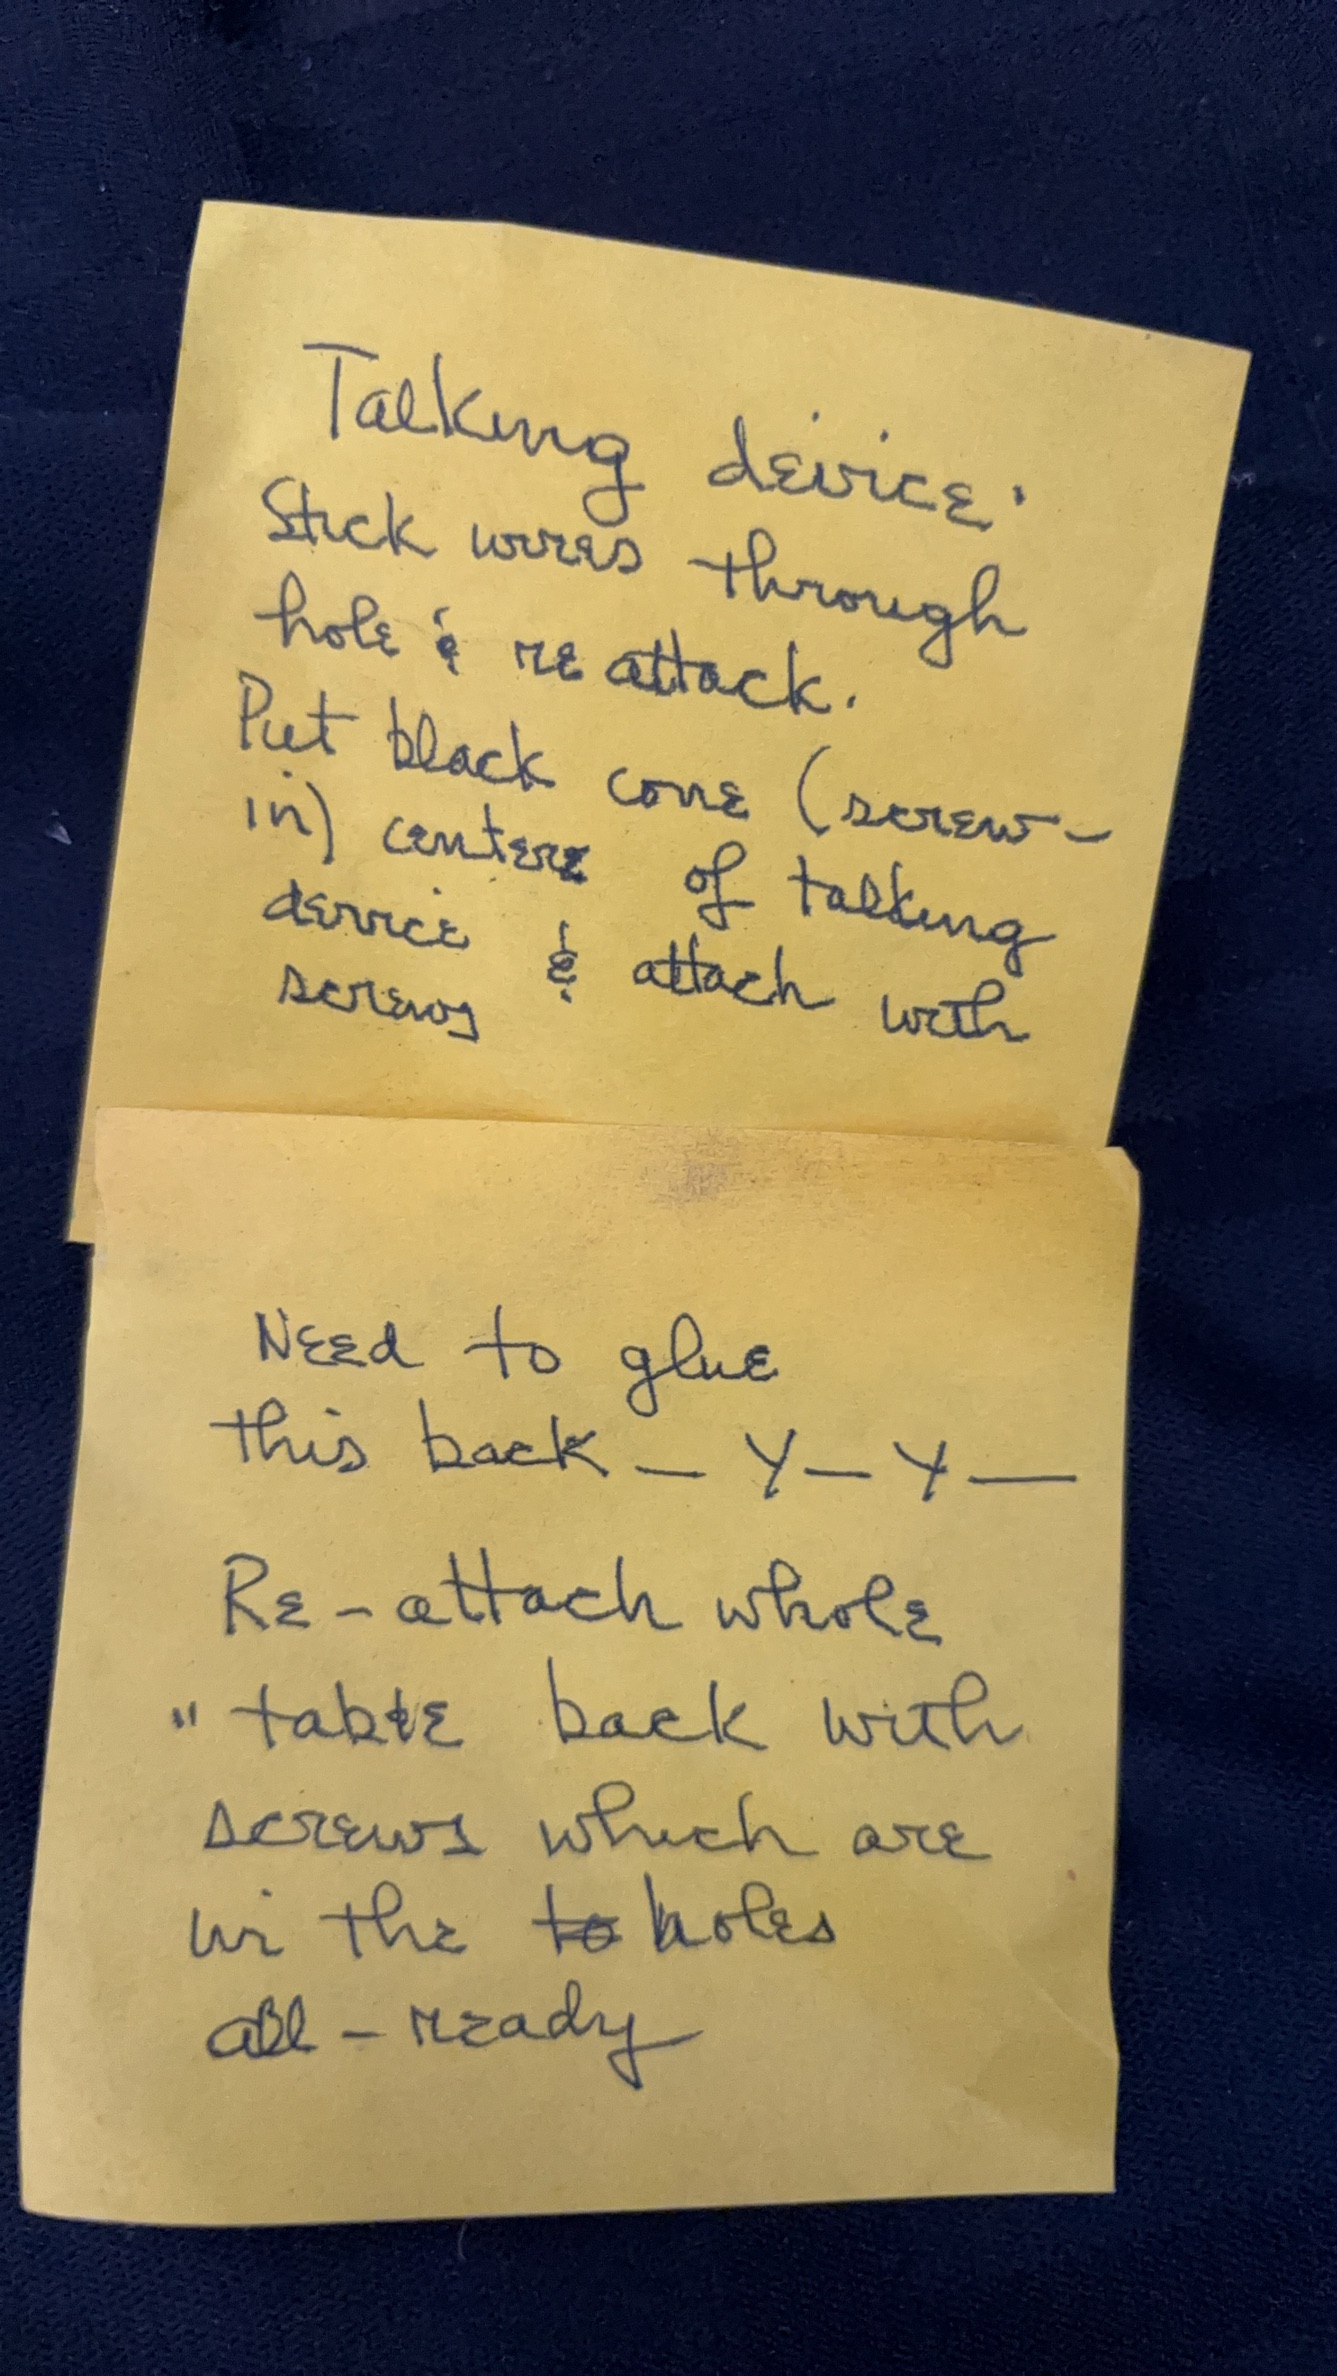 Talking device.
Stick wires through
hole & re attack.
Put black cone (screw-
in) centere of talking
device & attach with
screws
Need to glue
this back — Y — Y —
Re-attach whole
" table back with
screws which are
in the to holes
all-ready